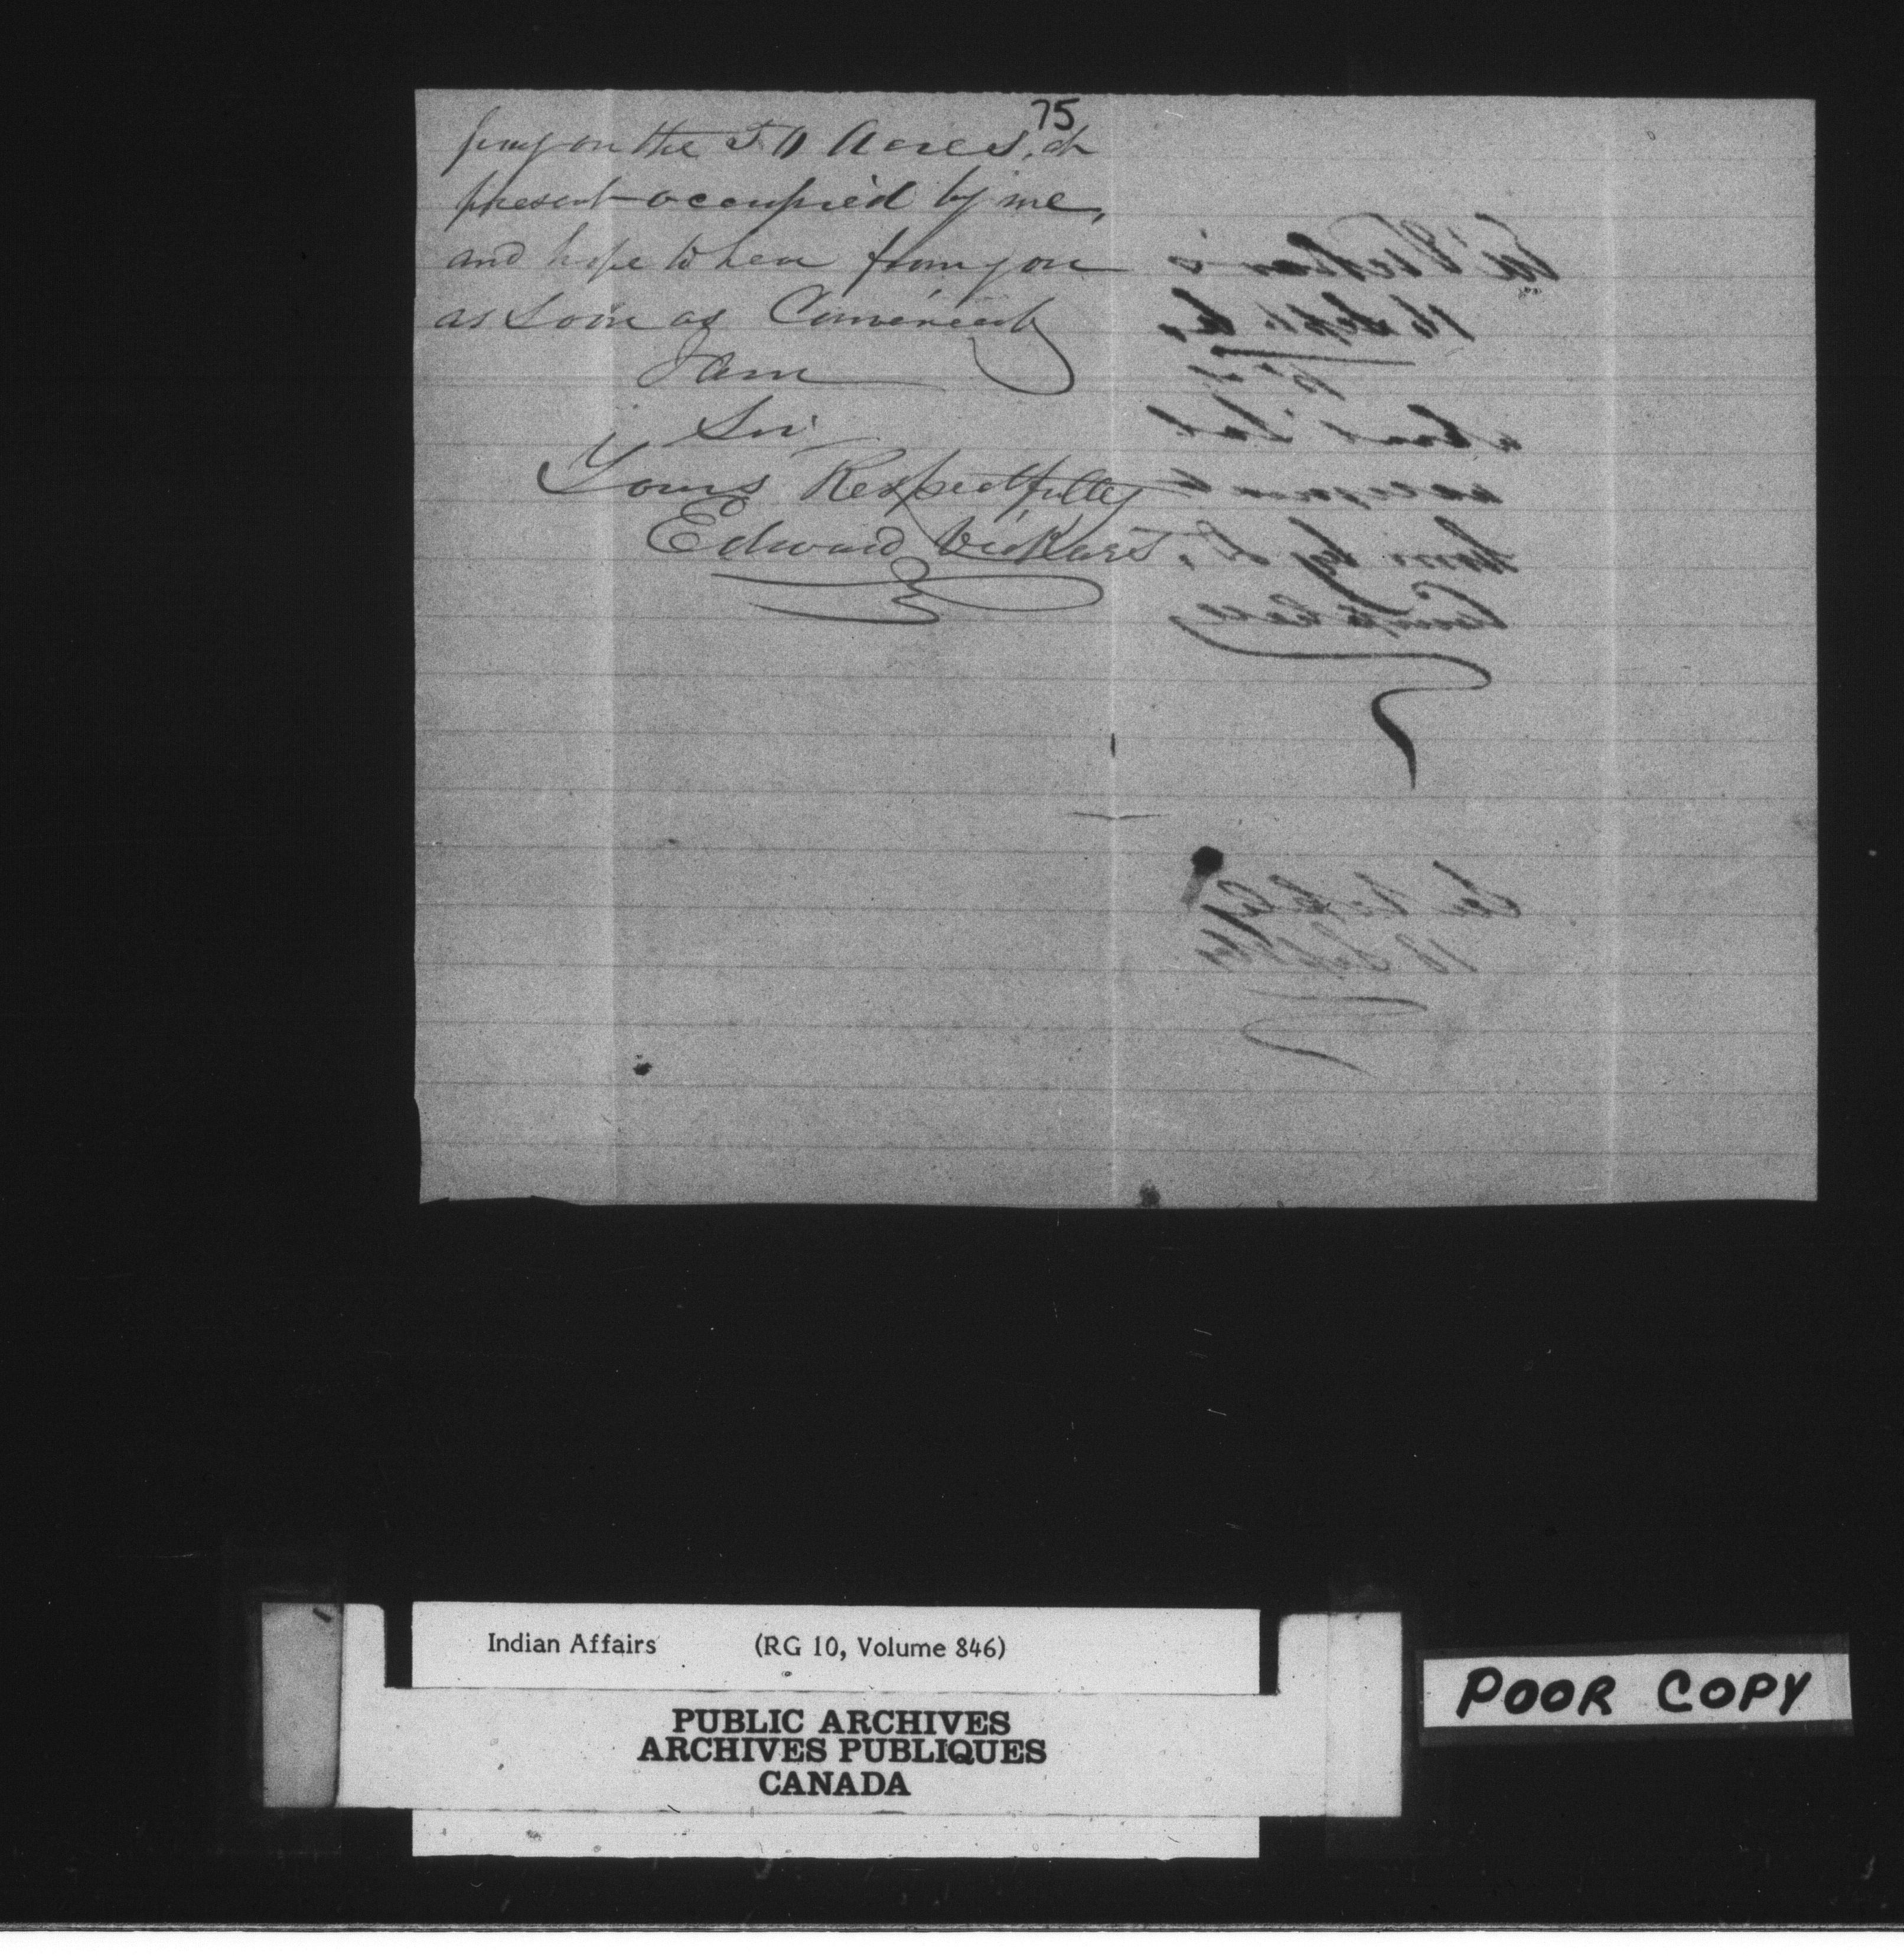 75
on the 50 Acres, at
present occupied by me,
and hope to hear from you
as soon as Convenient
I am
Sir
Yours Respectfully
Edward Vickers
16 Sept.
about Lot
him by
Campbell
18 Sept
Indian Affairs (RG 10, Volume 846)
PUBLIC ARCHIVES
ARCHIVES PUBLIQUES
CANADA
POOR COPY